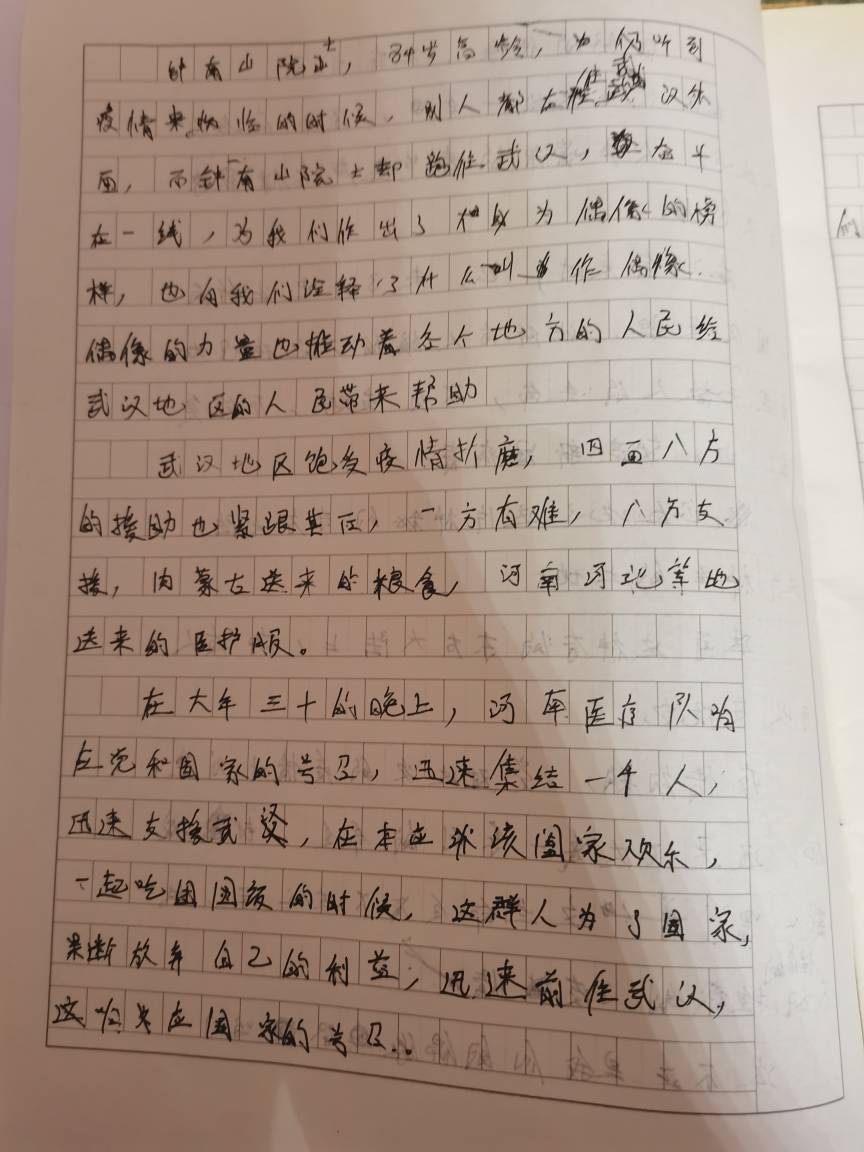 钟南山院士，84岁高龄，当他听到
疫情来临的时候，别人都在往武汉外
面，而钟南山院士却跑往武汉，奋斗
在一线，为我们作出了成为偶像的榜
样，也向我们诠释了什么叫作偶像.
偶像的力量也推动着各个地方的人民给
武汉地区的人民带来帮助
武汉地区饱受疫情折磨，四面八方
的援助也紧跟其后，一方有难，八方支
援，内蒙古送来的粮食，河南河北等地
送来的医护服。
在大年三十的晚上，河南医疗队响
应党和国家的号召，迅速集结一千人，
迅速支援武汉，在本应该阖家欢乐，
一起吃团圆饭的时候，这群人为了国家，
果断放弃自己的利益，迅速前往武汉，
这响应国家的号召..